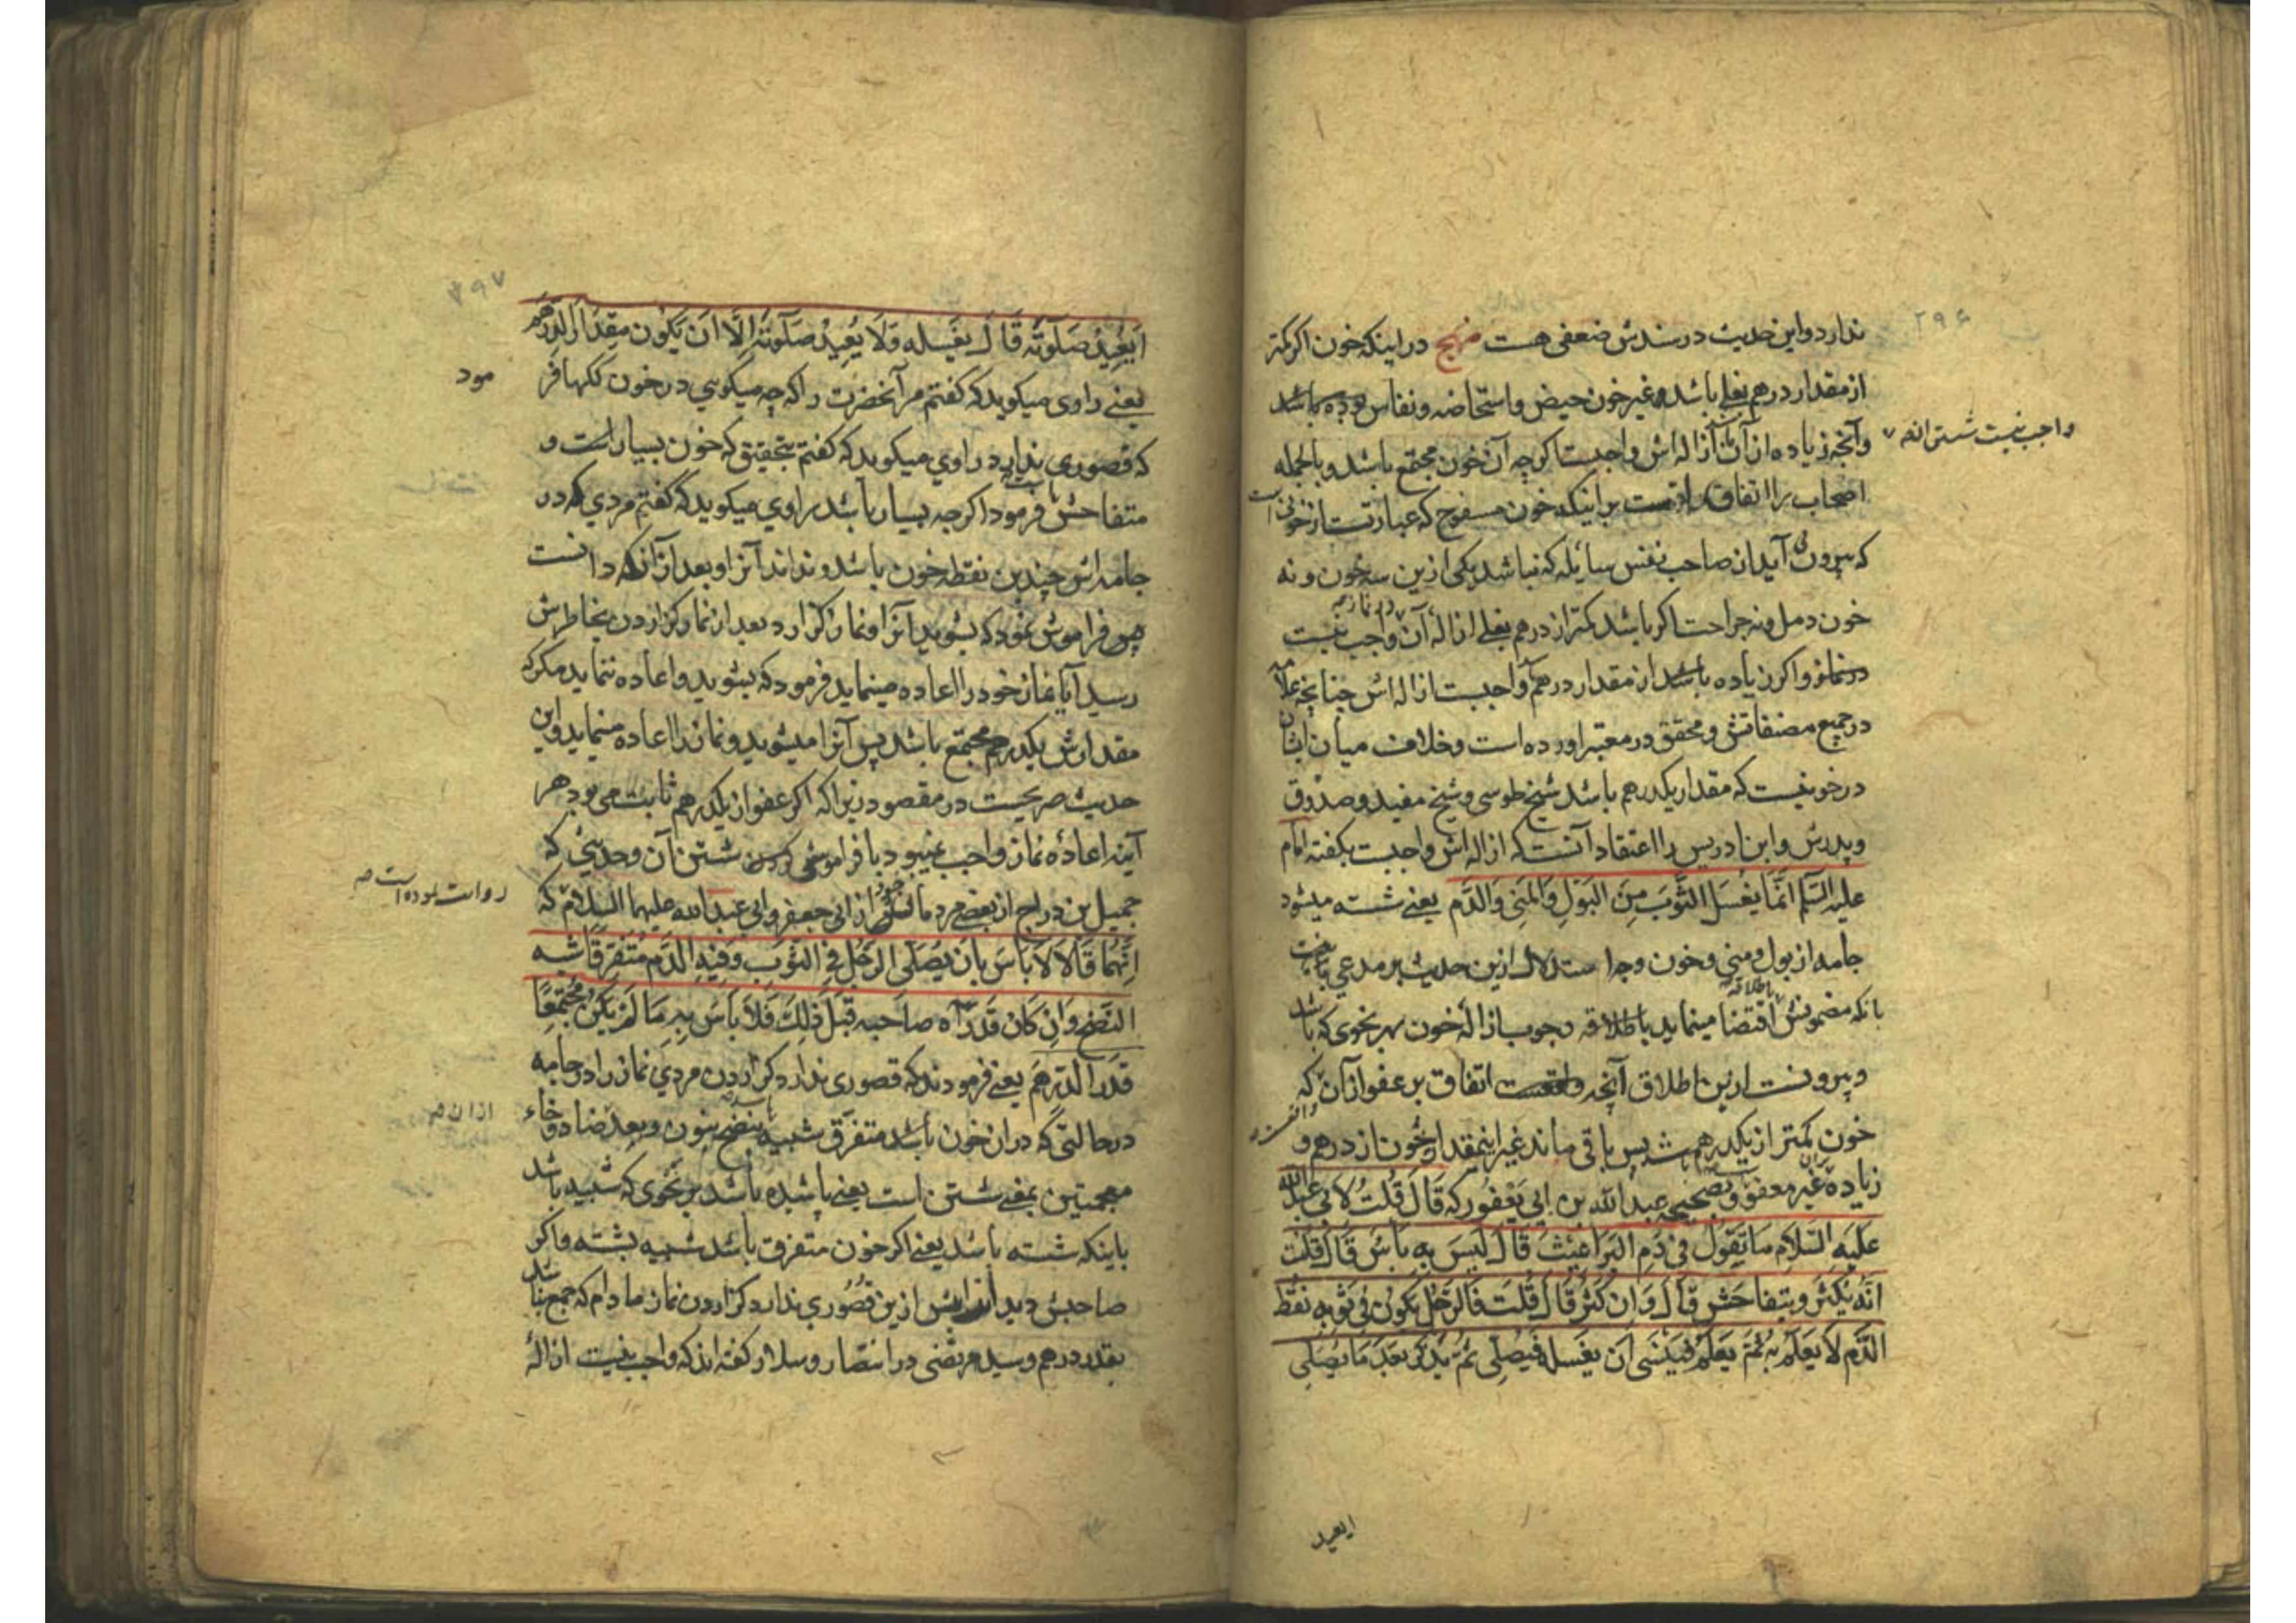 ۲۹۶
ندارد و این حدیث در سندش ضعفی هست منهج در اینکه خون اگر کمتر
از مقدار درهم بغلی باشد و غیر خون حیض و استحاضه و نفاس بوده باشد
واجب نیست شستن انه
و آنچه زیاده از آن ازاله اش واجبست اگرچه آن خون مجتمع باشد و بالجمله
اصحاب را اتفاق است بر اینکه خون مسفوح که عبارتست از خونی است
که بیرون آید از صاحب نفس سایله که نباشد یکی ازین سه خون و نه
خون دمل و نه جراحت اگر باشد کمتر از درهم بغلی ازاله آن واجب نیست
در نماز و اگر زیاده باشد از مقدار درهم واجبست ازاله اش چنانچه علامه
در جمیع مصنفاتش و محقق در معتبر اورده است و خلاف میان ایشان
در خونیست که مقدار یکدرهم باشد شیخ طوسی و شیخ مفید و صدوق
و پدرش و ابن ادریس را اعتقاد آنست که ازاله اش واجبست بگفته امام
علیه السلام انَّما یغسل الثَّوبَ مِنَ البَولِ وَالمَنی وَالدَّم یعنی شسته میشود
جامه از بول و منی و خون وجه استدلال ازین حدیث بر مدعی
بانکه مضمونش اقتضا مینماید باطلاقه وجوب ازالهٔ خون بهر نحوی که باشد
و بیرونست ازین اطلاق آنچه اتفاق بر عفو از آن که
خون کمتر از یکدرهم باشد پس باقی ماند غیر اینمقدار خون از درهم و
زیاده غیر معفو و بصحیحه عبدالله بن ابی یعفور که قالَ قلتُ لابی عبدالله
علیه السلام ما تقولُ فی دَمِ البَراغیثَ قالَ لَیسَ بِهِ بأس قالَ قلت
انّه یکثر و یتفاحش قالَ وَان کثر قالَ قلت فَالرّجل یکون فی ثوبه نقط
الدَّم لا یعلم به ثم یعلم فینسی ان یغسله فیصلی ثم یذکر بعد ما یصلی
ایعید
۲۹۷
ایعید صلوته قالَ یغسله ولا یعید صلوته الا ان یکون مقدار الدرهم
یعنی راوی میکوید که کفتم مر آنحضرت را که چه میکویی در خون ککها فر
مود
که قصوری ندارد راوی میکوید که کفتم بتحقیق که خون بسیار است و
متفاحش فرمود اکرچه بسیار باشد راوی میکوید که کفتم مردی که در
جامه اش چندین نقطه خون باشد و نداند آنرا و بعد از آنکه دانست
فراموش نمود که بشوید آنرا و نماز کزارد بعد از نماز کزاردن بخاطرش
رسید آیا نماز خود را اعاده مینماید فرمود که بشوید و اعاده ننماید مکر که
مقدارش یکدرهم مجتمع باشد پس آنرا میشوید و نماز را اعاده مینماید و این
حدیث صریحست در مقصود زیرا که اکر عفو از یکدرهم ثابت می بود هر
آینه اعادهٔ نماز واجب نمیبود با فراموشی کردن شستن آن و حدیثی که
جمیل بن دراج از بعضی مردمان خود از ابی جعفر و ابی عبدالله علیهما السلام که
روایت نموده است
انّهما قالا لا باس بان یصلی الرجل فی الثوب و فیه الدم متفرقا شبه
النضح وان کان قد رآه صاحبه قبل ذلک فلا باس به ما لم یکن مجتمعا
قدر الدرهم یعنی فرمودند که قصوری ندارد کزاردن مردی نماز را در جامه
در حالتی که در ان خون باشد متفرق شبیه بنضح بنون و بعد ضاد و حاء
معجمتین بمعنی شستن است یعنی پاشیده باشد بر نحوی که شبیه باشد
باینکه شسته باشد یعنی اکر خون متفرق باشد شبیه بشسته و اکر
صاحبش دید پس ازین قصوری ندارد کزاردن نماز مادام که جمع نباشد
بقدر درهم و سید مرتضی در انتصار و سلار کفته اند که واجب نیست ازالهٔ